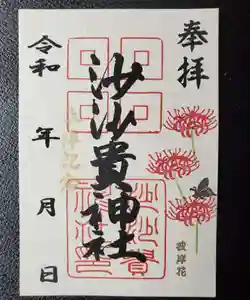 奉拝
沙沙貴神社
令和 年 月 日
彼岸花